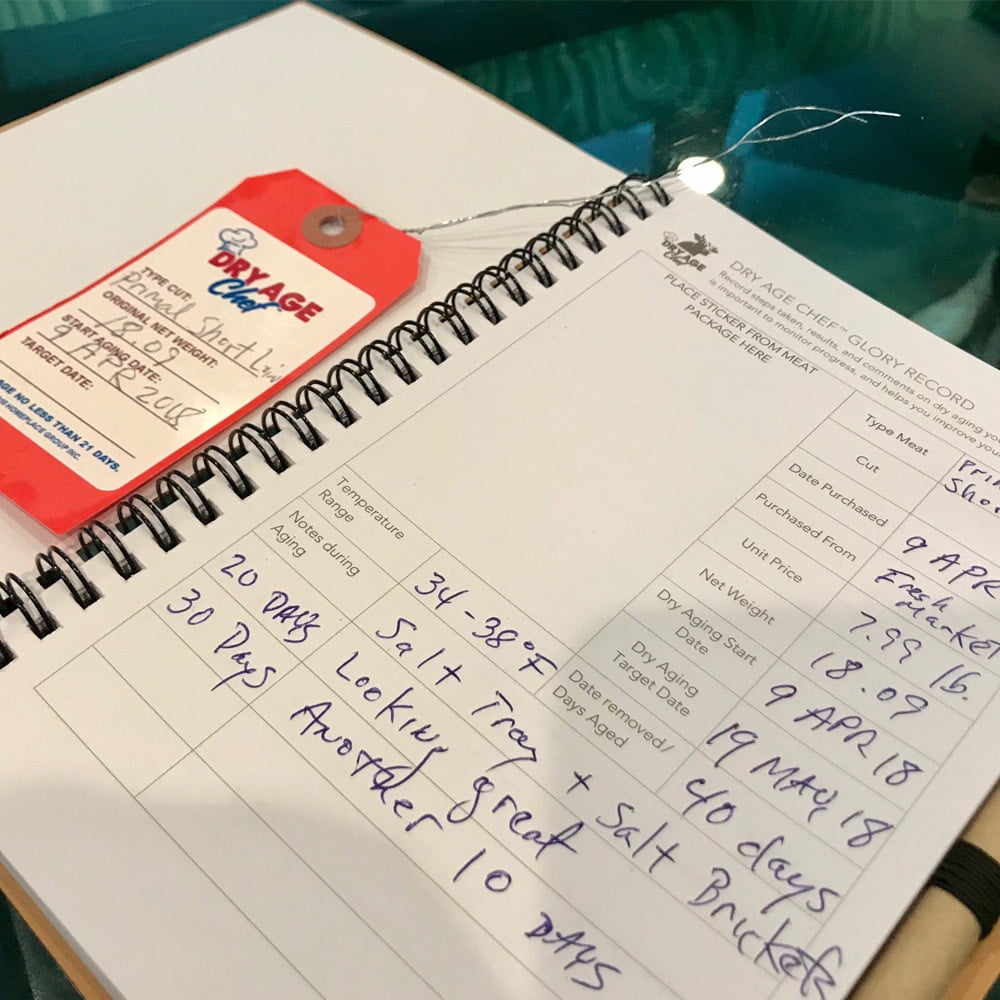 DRY AGE
Chef
TYPE CUT:
Primal Short Loin
ORIGINAL NET WEIGHT:
18.09
START AGING DATE:
9 APR 2018
TARGET DATE:
AGE NO LESS THAN 21 DAYS.
HOMEPLACE GROUP INC.
DRY AGE
Chef
DRY AGE CHEF™ GLORY RECORD
Record steps taken, results, and comments on dry aging
is important to monitor progress, and helps you improve your
PLACE STICKER FROM MEAT
PACKAGE HERE
Type Meat
Cut
Date Purchased
9 APR
Purchased From
Fresh
Market
Unit Price
7.99 lb.
Net Weight
18.09
Dry Aging Start
Date
9 APR 18
Dry Aging
Target Date
19 MAY 18
Date removed/
Days Aged
40 days
Temperature
Range
34-38°F
Notes during
Aging
Salt Tray + Salt Brickets
20 DAYS
Looking great
30 Days
Another 10 DAYS